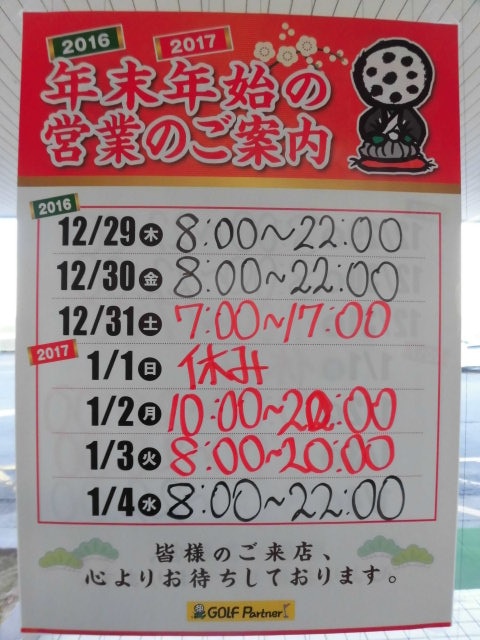 2016 2017
年末年始の
営業のご案内
2016
12/29 木 8:00~22:00
12/30 金 8:00~22:00
12/31 土 7:00~17:00
2017
1/1 日 休み
1/2 月 10:00~20:00
1/3 火 8:00~20:00
1/4 水 8:00~22:00
皆様のご来店、
心よりお待ちしております。
GOLF Partner